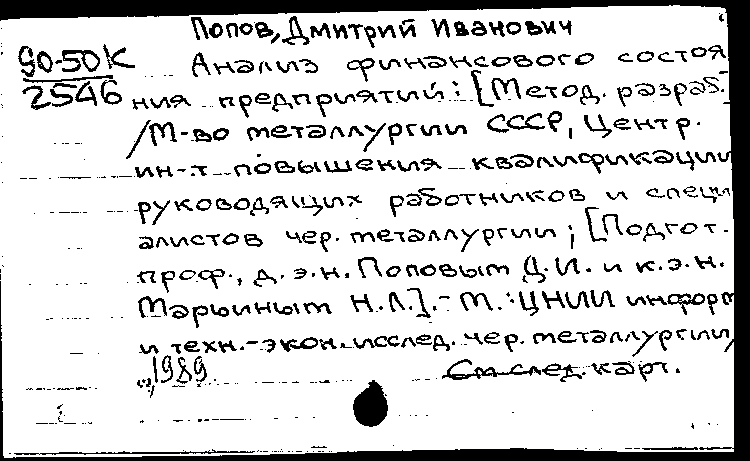 Попов, Дмитрий Иванович
90-50К
2546
Анализ финансового состоя
ния предприятий: [Метод. разраб.]
/М-во металлургии СССР, Центр.
ин-т повышения квалификации
руководящих работников и специ
алистов чер. металлургии; [Подгот.
проф., д.э.н. Поповым Д.И. и к.э.н.
Марьиным Н.Л.].- М.: ЦНИИ информ
и техн.-экон. исслед. чер. металлургии,
1989
См след. карт.